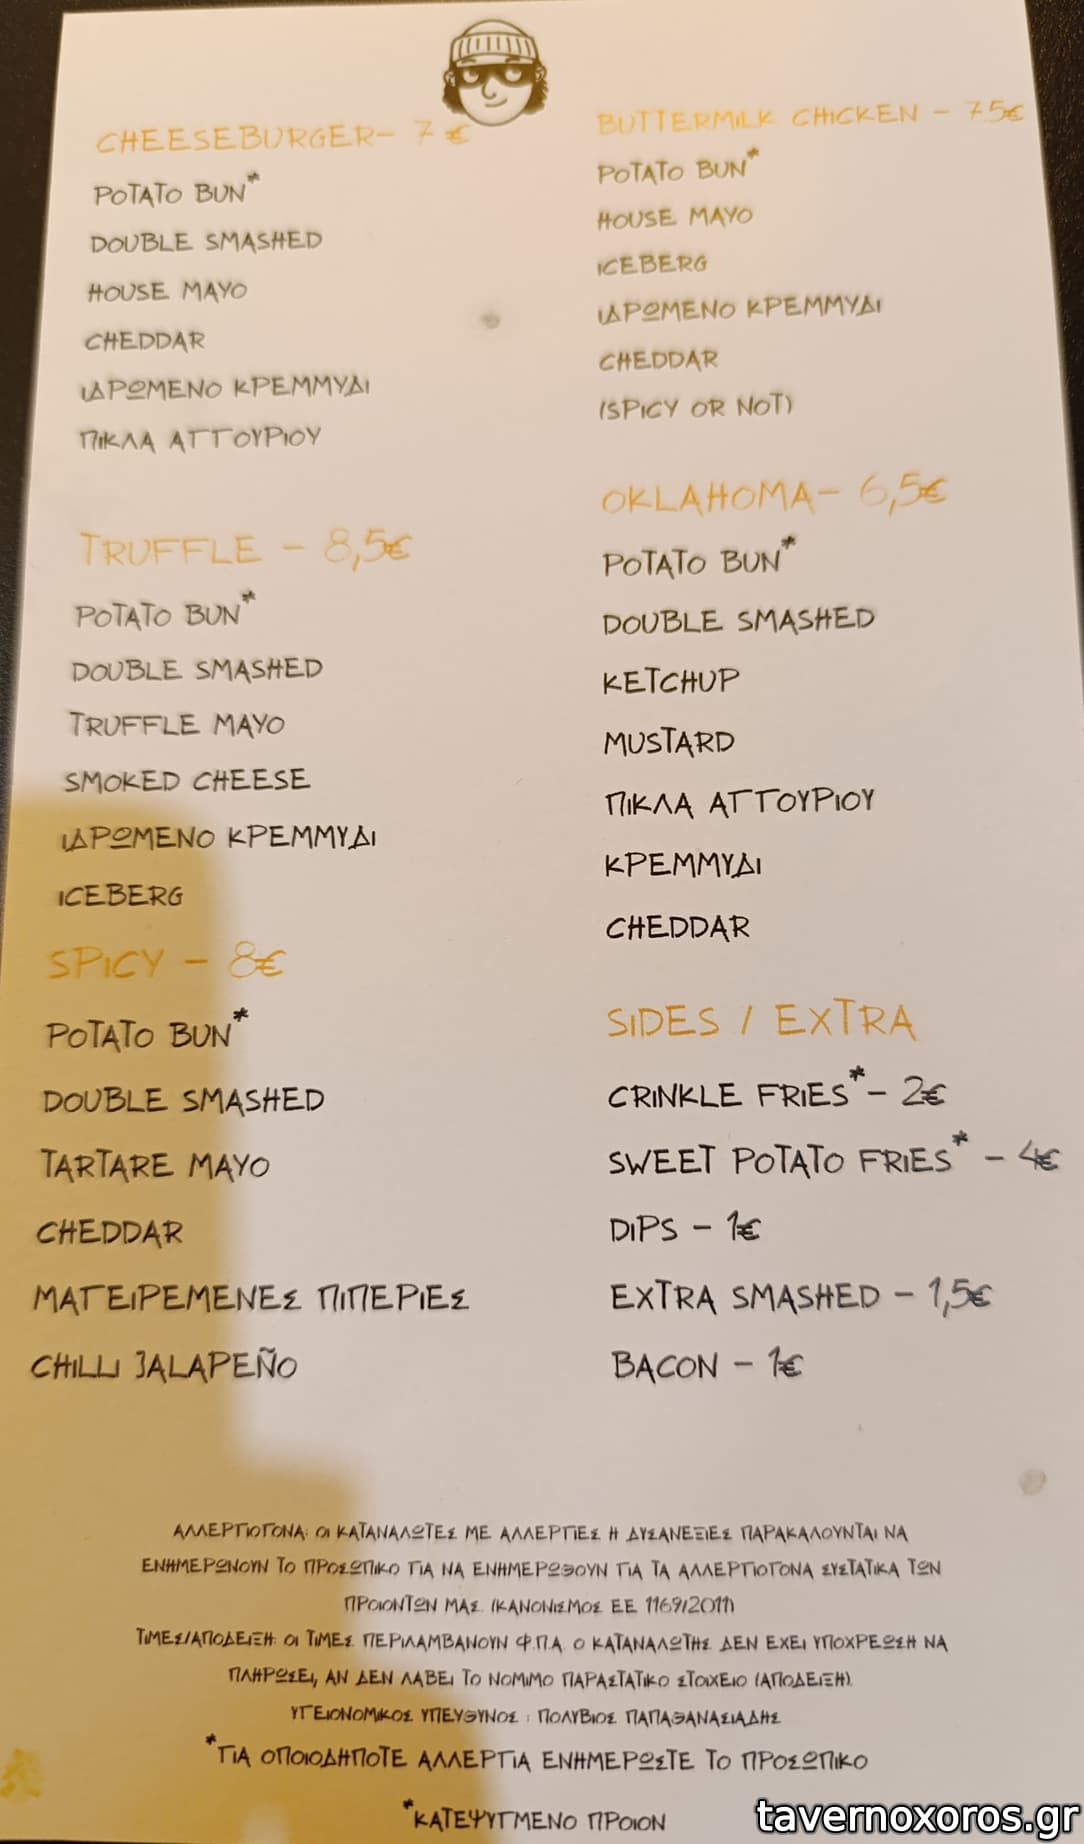 CHEESEBURGER- 7 €
POTATO BUN*
DOUBLE SMASHED
HOUSE MAYO
CHEDDAR
ΙΔΡΩΜΕΝΟ ΚΡΕΜΜΥΔΙ
ΠΙΚΛΑ ΑΓΓΟΥΡΙΟΥ
TRUFFLE - 8,5€
POTATO BUN*
DOUBLE SMASHED
TRUFFLE MAYO
SMOKED CHEESE
ΙΔΡΩΜΕΝΟ ΚΡΕΜΜΥΔΙ
ICEBERG
SPICY - 8€
POTATO BUN*
DOUBLE SMASHED
TARTARE MAYO
CHEDDAR
ΜΑΓΕΙΡΕΜΕΝΕΣ ΠΙΠΕΡΙΕΣ
CHILLI JALAPEÑO
BUTTERMILK CHICKEN - 7.5€
POTATO BUN*
HOUSE MAYO
ICEBERG
ΙΔΡΩΜΕΝΟ ΚΡΕΜΜΥΔΙ
CHEDDAR
(SPICY OR NOT)
OKLAHOMA- 6,5€
POTATO BUN*
DOUBLE SMASHED
KETCHUP
MUSTARD
ΠΙΚΛΑ ΑΓΓΟΥΡΙΟΥ
ΚΡΕΜΜΥΔΙ
CHEDDAR
SIDES / EXTRA
CRINKLE FRIES* - 2€
SWEET POTATO FRIES* - 4€
DIPS - 1€
EXTRA SMASHED - 1,5€
BACON - 1€
ΑΛΛΕΡΓΙΟΓΟΝΑ: ΟΙ ΚΑΤΑΝΑΛΩΤΕΣ ΜΕ ΑΛΛΕΡΓΙΕΣ Η ΔΥΣΑΝΕΞΙΕΣ ΠΑΡΑΚΑΛΟΥΝΤΑΙ ΝΑ
ΕΝΗΜΕΡΩΝΟΥΝ ΤΟ ΠΡΟΣΩΠΙΚΟ ΓΙΑ ΝΑ ΕΝΗΜΕΡΩΘΟΥΝ ΓΙΑ ΤΑ ΑΛΛΕΡΓΙΟΓΟΝΑ ΣΥΣΤΑΤΙΚΑ ΤΩΝ
ΠΡΟΙΟΝΤΩΝ ΜΑΣ. (ΚΑΝΟΝΙΣΜΟΣ ΕΕ 1169/2011)
ΤΙΜΕΣ/ΑΠΟΔΕΙΞΗ: ΟΙ ΤΙΜΕΣ ΠΕΡΙΛΑΜΒΑΝΟΥΝ Φ.Π.Α. Ο ΚΑΤΑΝΑΛΩΤΗΣ ΔΕΝ ΕΧΕΙ ΥΠΟΧΡΕΩΣΗ ΝΑ
ΠΛΗΡΩΣΕΙ, ΑΝ ΔΕΝ ΛΑΒΕΙ ΤΟ ΝΟΜΙΜΟ ΠΑΡΑΣΤΑΤΙΚΟ ΣΤΟΙΧΕΙΟ (ΑΠΟΔΕΙΞΗ).
ΥΓΕΙΟΝΟΜΙΚΟΣ ΥΠΕΥΘΥΝΟΣ : ΠΟΛΥΒΙΟΣ ΠΑΠΑΘΑΝΑΣΙΑΔΗΣ
*ΓΙΑ ΟΠΟΙΟΔΗΠΟΤΕ ΑΛΛΕΡΓΙΑ ΕΝΗΜΕΡΩΣΤΕ ΤΟ ΠΡΟΣΩΠΙΚΟ
*ΚΑΤΕΨΥΓΜΕΝΟ ΠΡΟΙΟΝ
tavernoxoros.gr